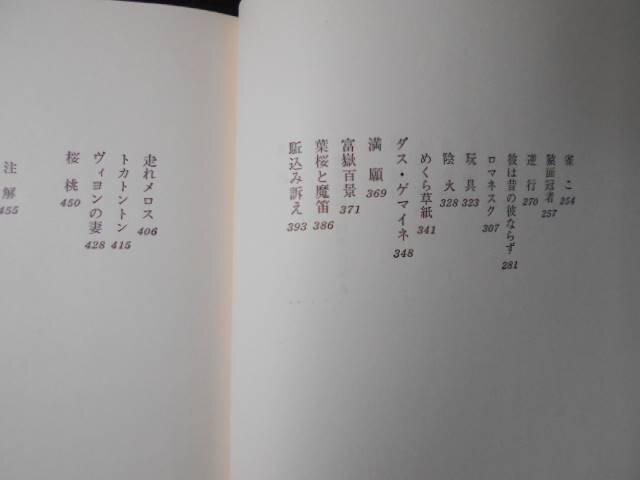 雀こ 254
猿面冠者 257
逆行 270
彼は昔の彼ならず 281
ロマネスク 307
玩具 323
陰火 328
めくら草紙 341
ダス・ゲマイネ 348
満願 369
富嶽百景 371
葉桜と魔笛 386
駈込み訴え 393
走れメロス 406
トカトントン 415
ヴィヨンの妻 428
桜桃 450
注解 455